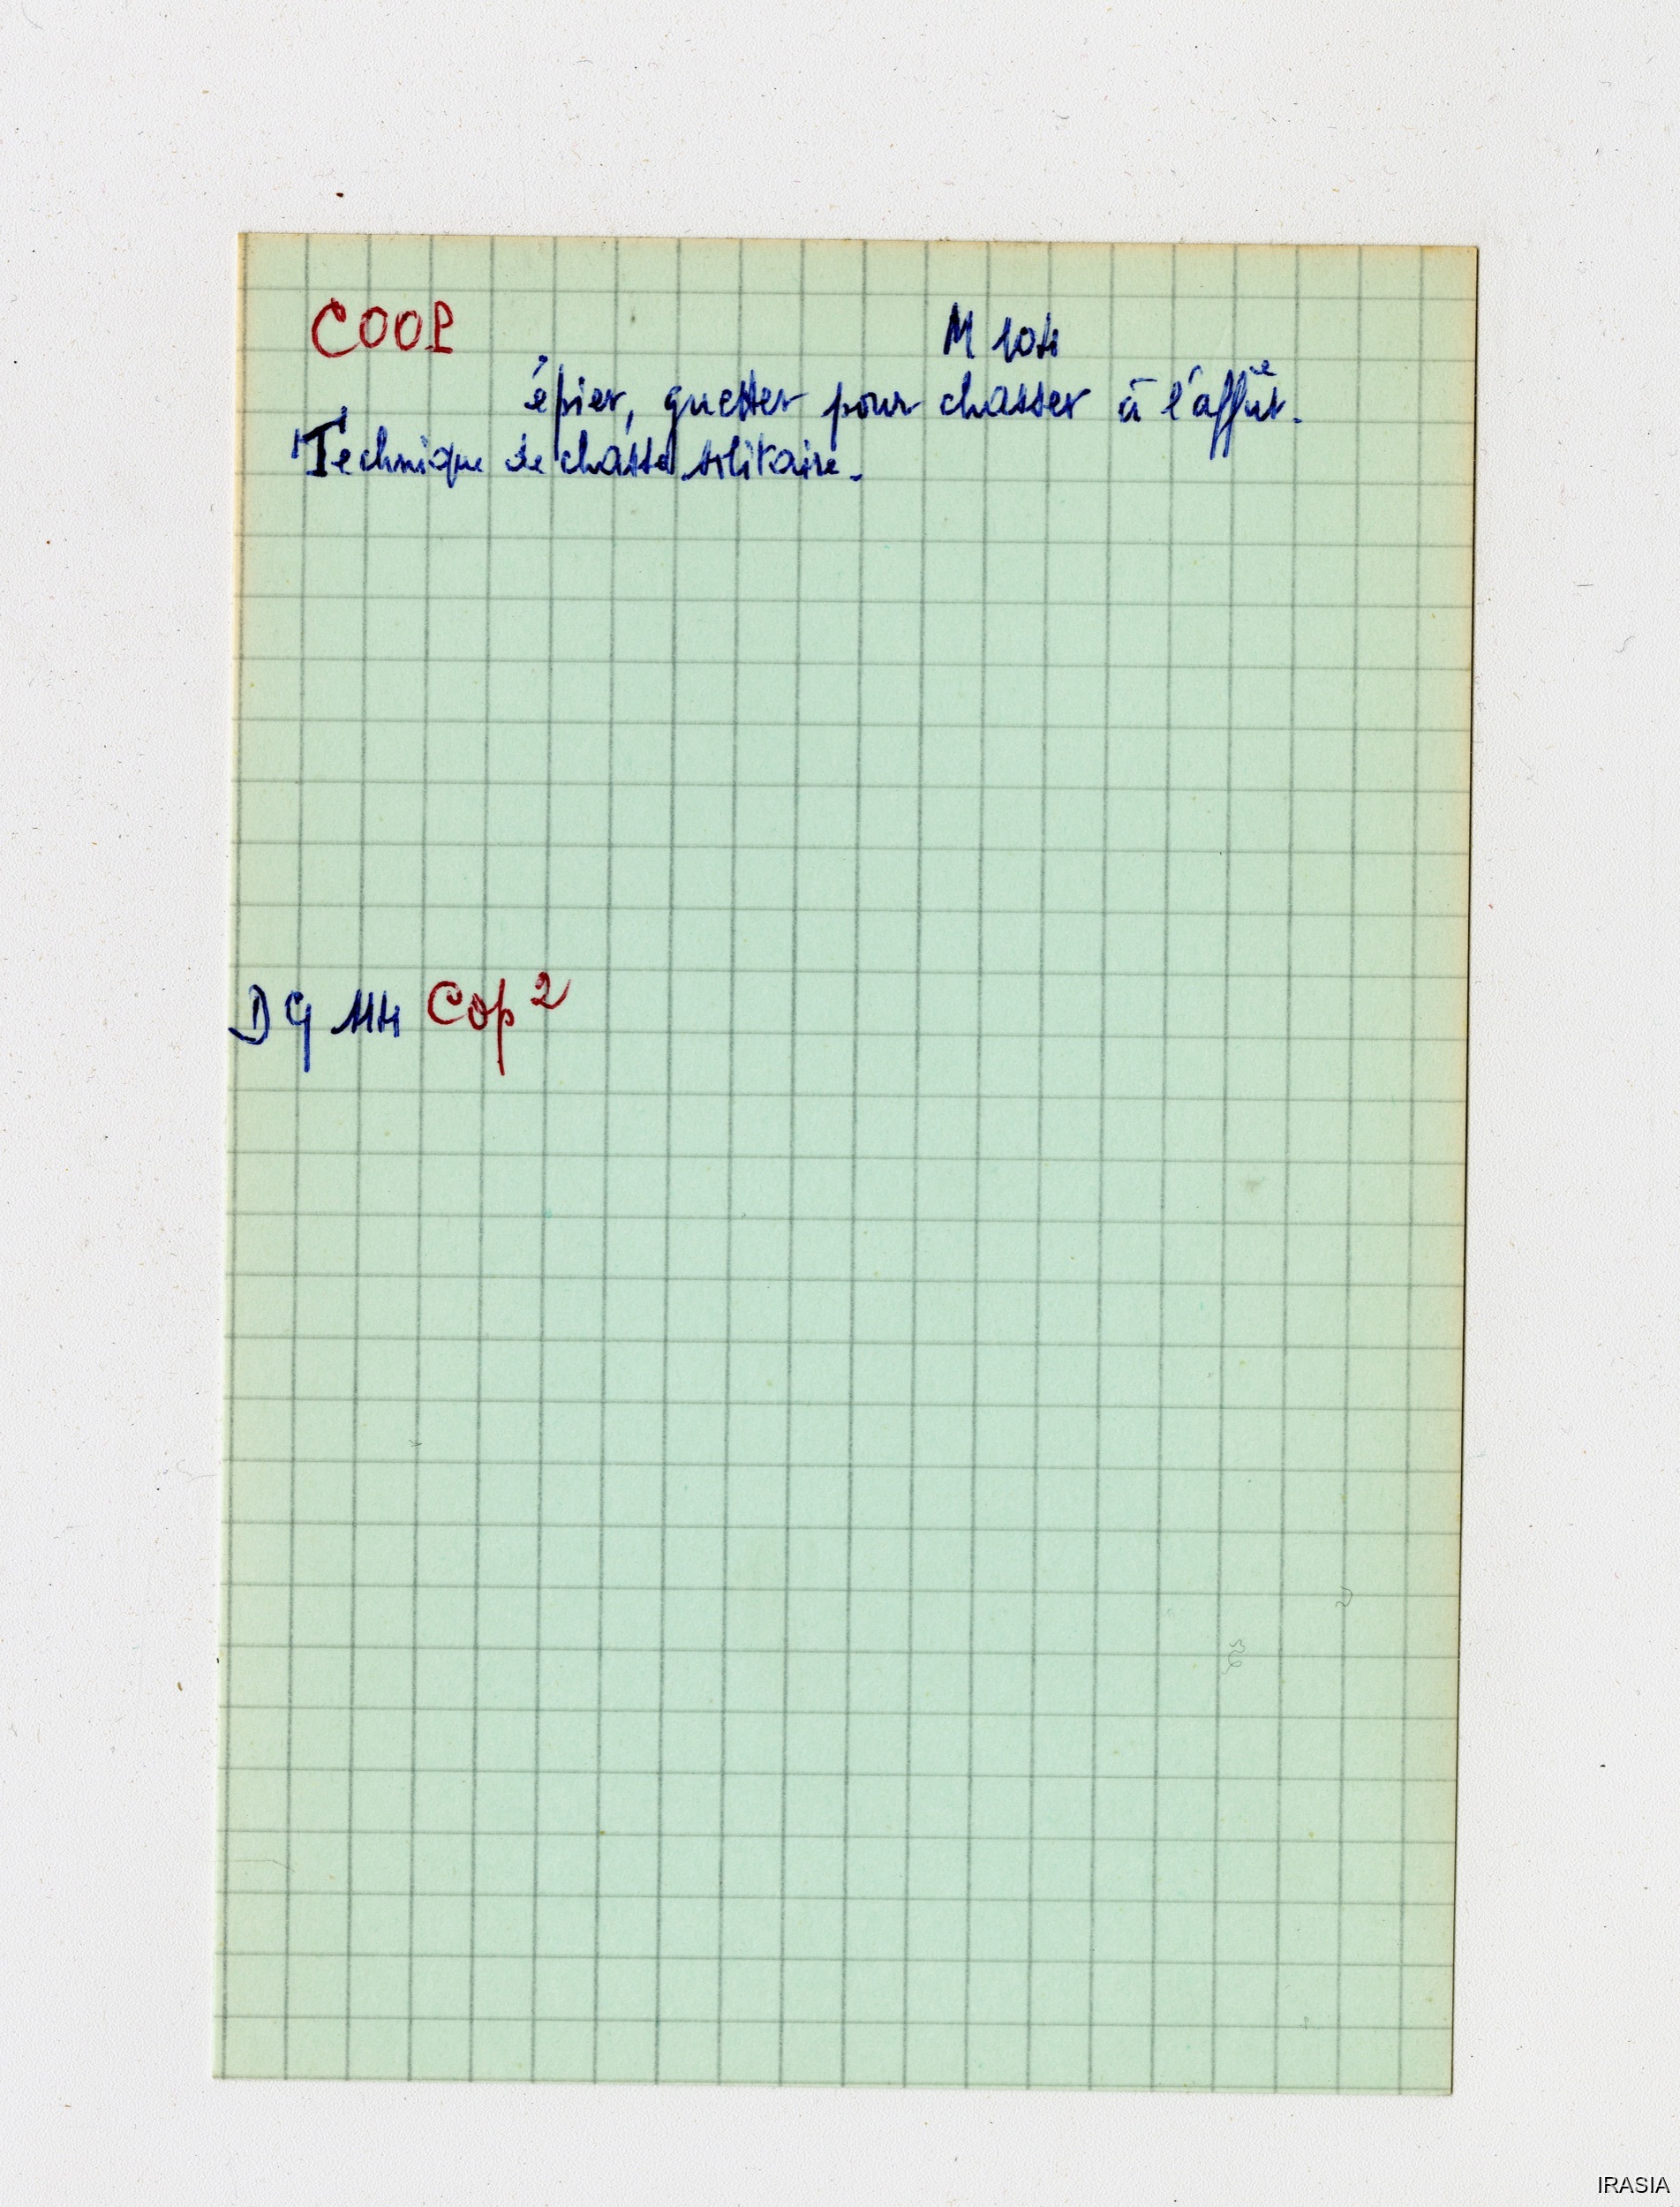 COOP M 104
épier, guetter pour chasser à l'affût.
Technique de chasse solitaire.
DG 114 Cop 2
IRASIA